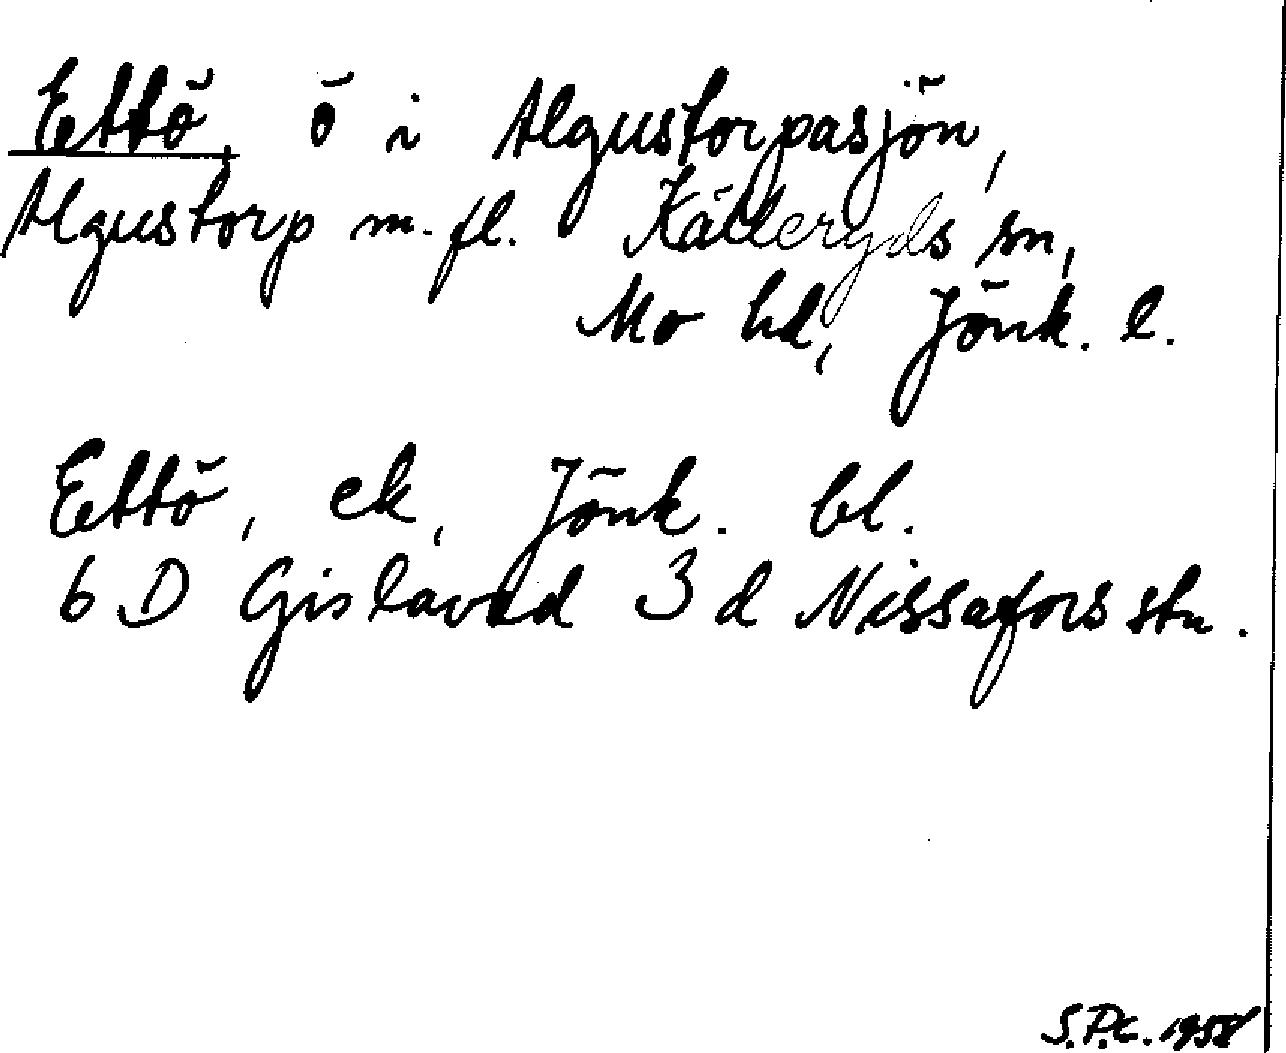 Ettö, ö i Algustorpasjön,
Algustorp m. fl. Källeryds sn,
Mo hd, Jönk. l.
Ettö, ek, Jönk. bl.
6 D Gislaved 3 d Nissafors stn.
S.P.C. 1958